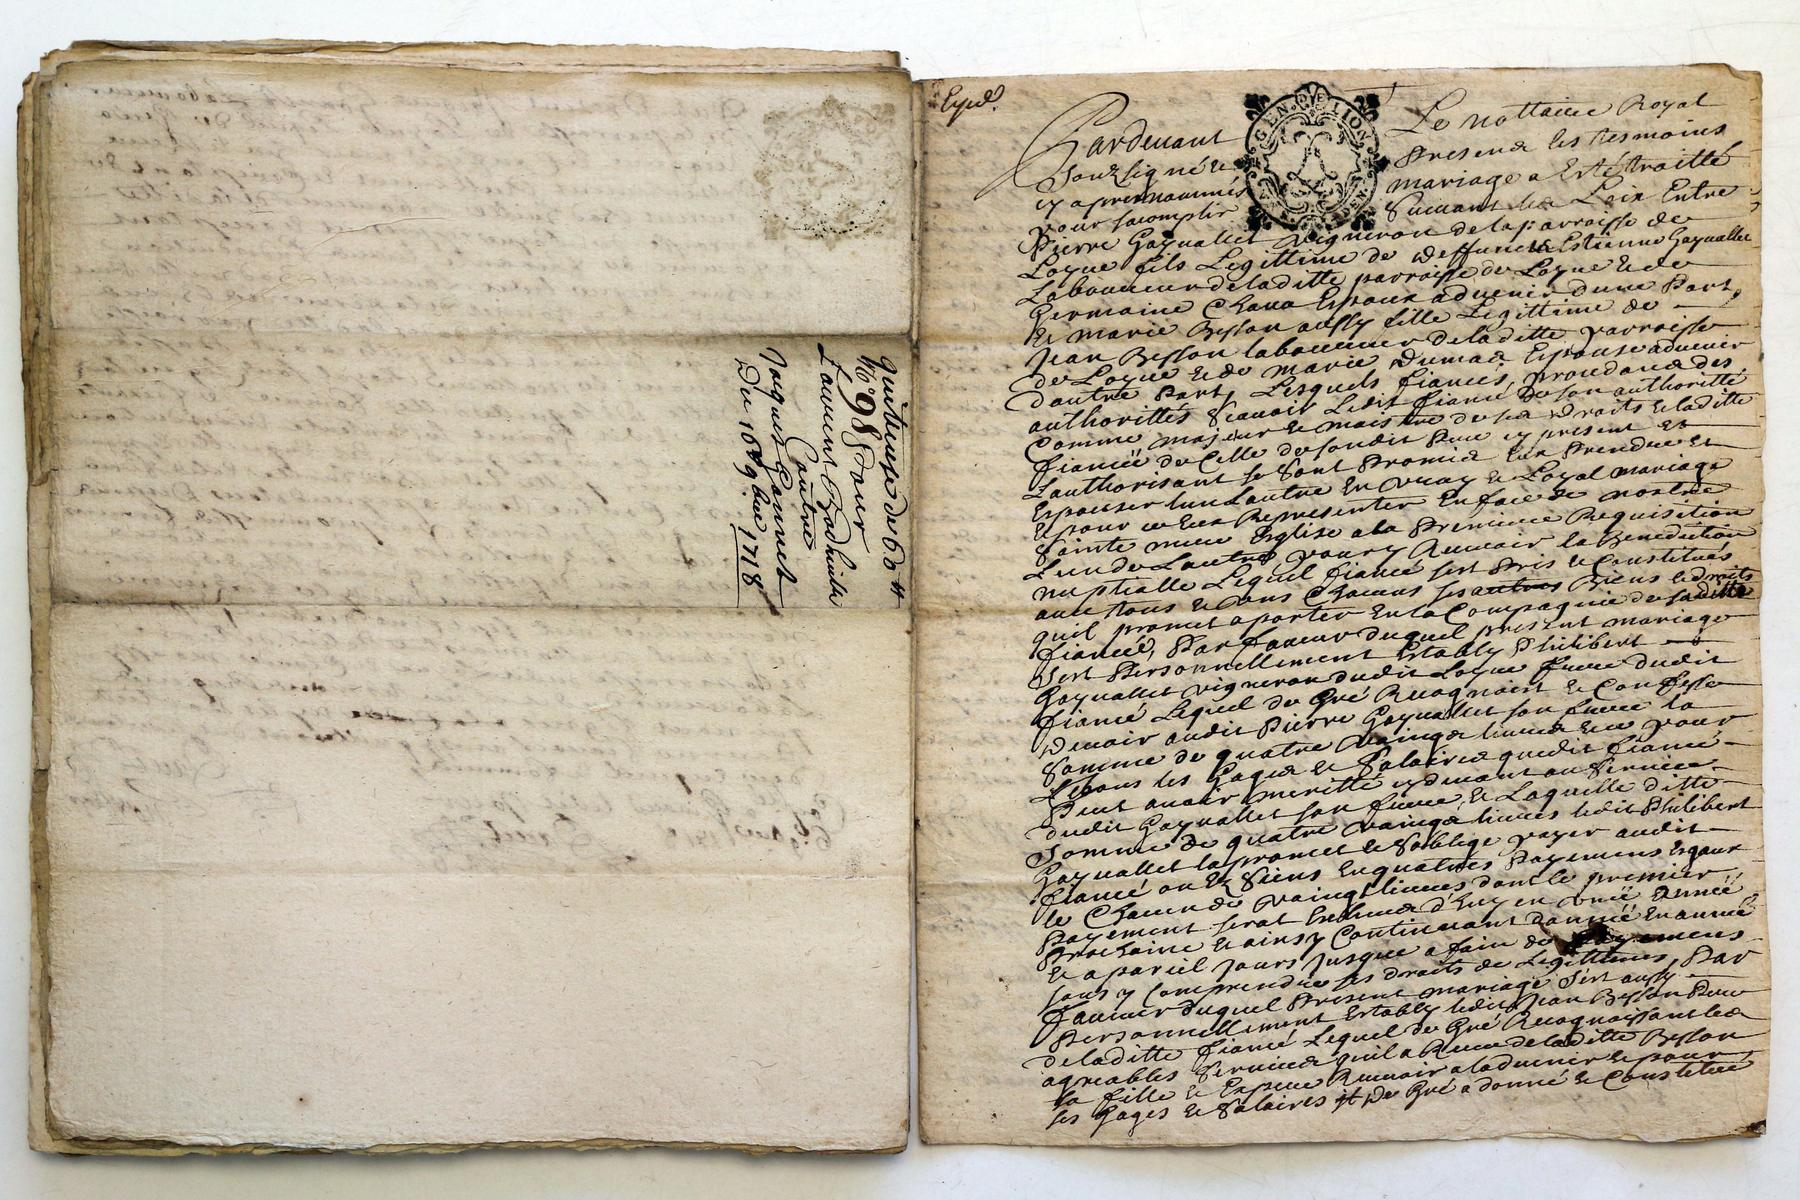 quittance de 60 tt
n° 98 pour
Laurent
Contre
Jacques Gonnet
Du 16e 9bre 1718
Expéd.
GEN. DE LION
Pardeuant Le nottaire Royal
Souzsigné & Presend les tesmoins
cy apres nommés mariage a Esté traitté
pour sacomplir Suiuant les Loix Entre
Pierre Gayuallet vigneron de la parroisse de
Loyue fils Legittime de deffunct Estienne Gayuallet
Laboureur de laditte parroisse de Loyue & de
Germaine Chana Espoux aduenir dune Part,
Et marie Besson aussy fille Legittime de
Jean Besson laboureur de laditte parroisse
de Loyue & de marie Dumas Espouse aduenir
dautre Part, Lesquels fiancés, procedans des
authorittés Scauoir Ledit fiancé de son authoritté
Comme majeur & maistre de ses droits & laditte
fiancéé de Celle de sondit Pere cy present et
Lauthorisant se Sont Promis Eux Prendre et
Espouser lun Lautre En vray & Loyal mariage
& pour ce Eux Representer En face de nostre
Sainte mere Eglise a la Premiere Requisition
Lun de Lautre pour y Receuoir la Benediction
nuptialle Lequel fiancé sest Pris & Constitués
auec tous & vns Chacuns ses autres Biens & droits
quil promet aporter En la Compagnie de saditte
fiancéé, Par faueur duquel present mariage
sest Personnellement Estably Philibert
Gayuallet vigneron dudit Loyue frere dudit
fiancé Lequel de Gré Recognoist & Confesse
deuoir audit Pierre Gayuallet son frere la
Somme de quatre vaingts liures & ce pour
tous les Gages & Salaires que dit fiancé
Peut auoir meritté cy deuant au Seruice
dudit Gayuallet son frere, & Laquelle ditte
Somme de quatre vaingts liures ledit Philibert
Gayuallet la promet & Soblige payer audit
fiancé ou Es Siens En quattres Payemens Egaux
de Chacun de vaingt liures dont le premier
Payement serat Escheu d'huy en vnë Annéé
Prochaine & ainsy Continuant d'annéé En annéé
& a pareil Jours Jusque a fain de payemens
sans y Comprendre ses droits de Legittimes, Par
faueur duquel Present mariage s'est aussy
Personnellement Estably ledit Jean Besson Pere
de laditte fiancéé Lequel de Gré Recognoissant les
agreables Seruices quil a Receu de laditte Besson
sa fille & Espere Receuoir a laduenir & pour
ses Gages & Salaires et de Gré a donné & Constitué